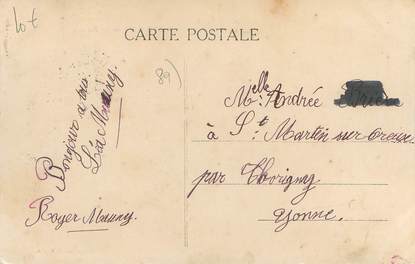 10€
CARTE POSTALE
89)
Bonjour a tous
Léa Mauny
Royer Mauny.
Melle Andrée
à St. Martin sur Oreuse
par Thorigny
Yonne.